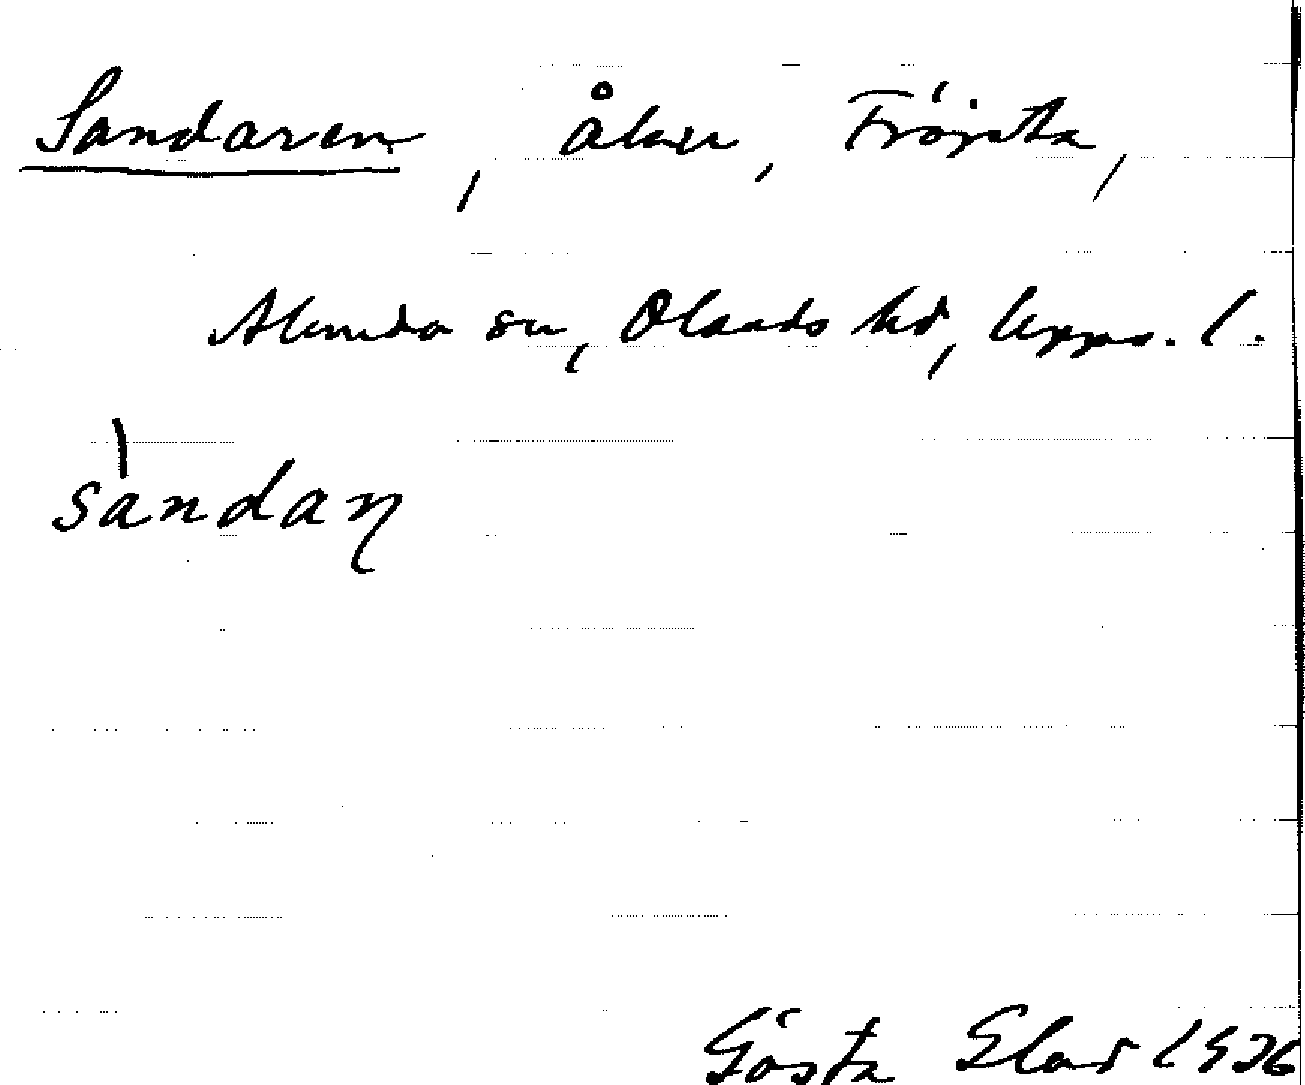 Sandaren, åker, Fröjsta,
Alunda sn, Olands hd, Upps. l.
sàndaɳ
Gösta 1936